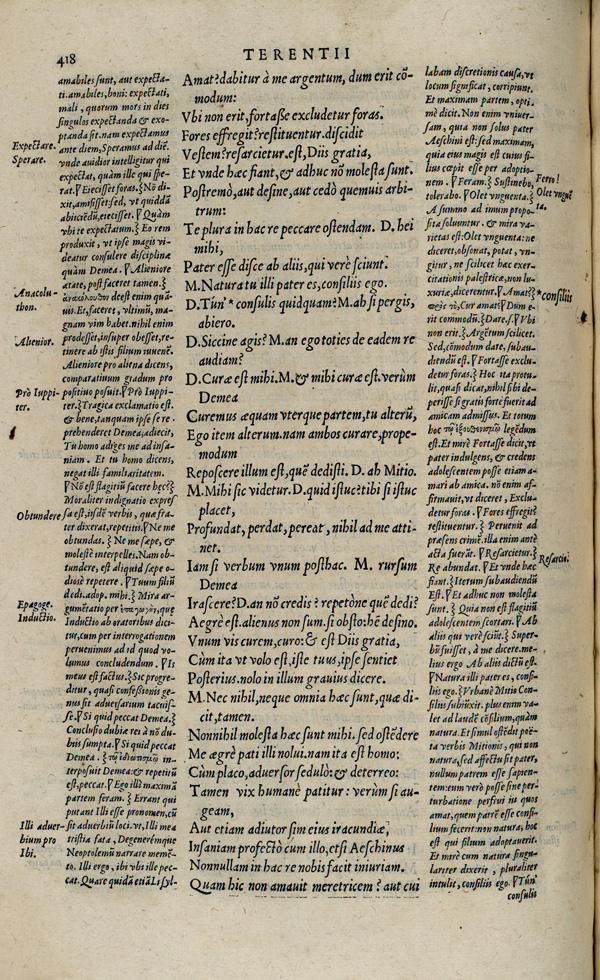 418
TERENTII
amabiles sunt, aut expecta-
ti. amabiles, boni: expectati,
mali, quorum mors in dies
singulos expectanda & exo-
ptanda sit. nam expectamus
Expectare.
ante diem, Speramus ad diē.
Sperare.
vnde auidior intelligitur qui
expectat, quàm ille qui spe-
rat. ∇ Eiecisset foras. ⸹ Nō di-
xit, amisisset: sed, vt quiddā
abiiciēdū, eiecisset. ∇ Quàm
vbi te expectatum. ⸹ Eo rem
produxit, vt ipse magis vi-
deatur consulere disciplinæ
quàm Demea. ∇ Alieniore
ætate, post faceret tamen. ⸹
Anacolu-
thon.
ἀνακόλουθον deest enim quā-
uis. Et, faceret, vltimū, ma-
gnam vim habet. nihil enim
prodesset, insuper obesset, re-
Alienior.
tinere ab istis filium iuuenē.
Alieniore pro aliena dicens,
comparatiuum gradum pro
Prò Iuppi-
ter.
positiuo posuit. ∇ Prò Iuppi-
ter. ⸹ Tragica exclamatio est.
& bene, tanquam ipse se re-
prehenderet Demea, adiecit,
Tu homo adiges me ad insa-
niam. Et tu homo dicens,
negat illi familiaritatem.
∇ Nō est flagitiū facere hæc? ⸹
Moraliter indignatio expres
Obtundere
sa est, iisdē verbis, quæ fra-
ter dixerat, repetitis. ∇ Ne me
obtundas. ⸹ Ne me sæpe, &
molestè interpelles. Nam ob-
tundere, est aliquid sæpe o-
diosè repetere. ∇ Tuum filiū
dedi. adop. mihi. ⸹ Mira ar-
Epagoge.
gumētatio per ἐπαγωγὴν, quæ
Inductio.
Inductio ab oratoribus dici-
tur, cum per interrogationem
peruenimus ad id quod vo-
lumus concludendum. ∇ Is
meus est factus. ⸹ Sic progre-
ditur, quasi confessionis ge-
nus sit aduersarium tacuis-
se. ∇ Si quid peccat Demea. ⸹
Conclusio dubiæ rei à nō du-
biis sumpta. ∇ Si quid peccat
Demea. ⸹ τῷ ἰδιωτισμῷ in-
terposuit Demea: & repetiū
est, peccat. ∇ Ego illi maximā
partem feram. ⸹ Errant qui
putant Illi esse pronomen, cū
Illi aduer-
bium pro
Ibi.
sit aduerbiū loci. vt, Illi mea
tristia fata, Degenerémque
Neoptolemū narrare memē-
to. Illi ergo, ibi vbi ille pec-
cat. Quare quidā etiā Li syl-
Amat? dabitur à me argentum, dum erit cō-
modum:
Vbi non erit, fortasse excludetur foras.
Fores effregit? restituentur. discidit
Vestem? resarcietur. est, Diis gratia,
Et vnde hæc fiant, & adhuc nō molesta sunt.
Postremò, aut desine, aut cedò quemuis arbi-
trum:
Te plura in hac re peccare ostendam. D. hei
mihi,
Pater esse disce ab aliis, qui verè sciunt.
M. Natura tu illi pater es, consiliis ego.
D. Tún' * consulis quidquam? M. ah si pergis,
abiero.
D. Siccine agis? M. an ego toties de eadem re
audiam?
D. Curæ est mihi. M. & mihi curæ est. verùm
Demea
Curemus æquam vterque partem, tu alterū,
Ego item alterum. nam ambos curare, prope-
modum
Reposcere illum est, quē dedisti. D. ah Mitio.
M. Mihi sic videtur. D. quid istuc? tibi si istuc
placet,
Profundat, perdat, pereat, nihil ad me atti-
net.
Iam si verbum vnum posthac. M. rursum
Demea
Irascere? D. an nō credis? repetōne quē dedi?
Aegrè est. alienus non sum. si obsto: hē desino.
Vnum vis curem, curo: & est Diis gratia,
Cùm ita vt volo est, iste tuus, ipse sentiet
Posterius. nolo in illum grauius dicere.
M. Nec nihil, neque omnia hæc sunt, quæ di-
cit, tamen.
Nonnihil molesta hæc sunt mihi. sed ostēdere
Me ægrè pati illi nolui. nam ita est homo:
Cùm placo, aduersor sedulò: & deterreo:
Tamen vix humanè patitur: verùm si au-
geam,
Aut etiam adiutor sim eius iracundiæ,
Insaniam profectò cum illo, etsi Aeschinus
Nonnullam in hac re nobis facit iniuriam.
Quam hic non amauit meretricem? aut cui
labam discretionis causa, vt
locum significat, corripiunt.
Et maximam partem, opti-
mè dicit. Non enim vniuer-
sam, quia non solus pater
Aeschini est: sed maximam,
quia eius magis est cuius fi-
lius cœpit esse per adoptio-
nem. ∇ Feram. ⸹ Sustinebo,
Fero!
tolerabo. ∇ Olet vnguenta. ⸹
Olet vnguē
ta.
A summo ad imum propo-
sita soluuntur. & mira va-
rietas est: Olet vnguenta: ne
diceret, obsonat, potat, vn-
gitur, ne scilicet hæc exer-
citationis palæstricæ, non lu-
xuriæ, dicerentur. ∇ Amat? ⸹
*consiliis
Cur amat? ∇ Dum e-
rit commodū. ⸹ Dare. ∇ Vbi
non erit. ⸹ Argētum scilicet.
Sed, cōmodum date, subau-
diendū est. ∇ Fortasse exclu-
detur foras. ⸹ Hoc ita protu-
lit, quasi dicat, nihil sibi de-
perisse si gratis fortè fuerit ad
amicam admissus. Et totum
hoc legēdum
est. Et mirè Fortasse dicit, vt
pater indulgens, & credens
adolescentem posse etiam a-
mari ab amica. nō enim af-
firmauit, vt diceret, Exclu-
detur foras. ∇ Fores effregit?
restituentur. ⸹ Peruenit ad
præsens crimē. illa enim antè
acta fuerāt. ∇ Resarcietur. ⸹
Resarcir.
Re abundat. ∇ Et vnde hæc
fiant. ⸹ Iterum subaudiendū
Est. ∇ Et adhuc non molesta
sunt. ⸹ Quia non est flagitiū
adolescentem scortari. ∇ Ab
aliis qui verè sciūt. ⸹ Super-
bū fuisset, à me dicere. me-
lius ergo Ab aliis dictū est.
∇ Natura illi pater es, consi-
liis ego. ⸹ Vrbanè Mitio Con-
siliis subiūxit. plus enim va-
let ad laudē cōsilium, quàm
natura. Et simul ostēdit poë-
ta verbis Mitionis, qui non
natura, sed affectu sit pater,
nullum patrem esse sapien-
tem: eum verò posse sine per-
turbatione perfrui iis quos
amat, quem patrē esse consi-
lium fecerit: non natura, hoc
est qui filium adoptauerit.
Et mirè cum natura singu-
lariter dixerit, pluraliter
intulit, consiliis ego. ∇ Tún'
consulis